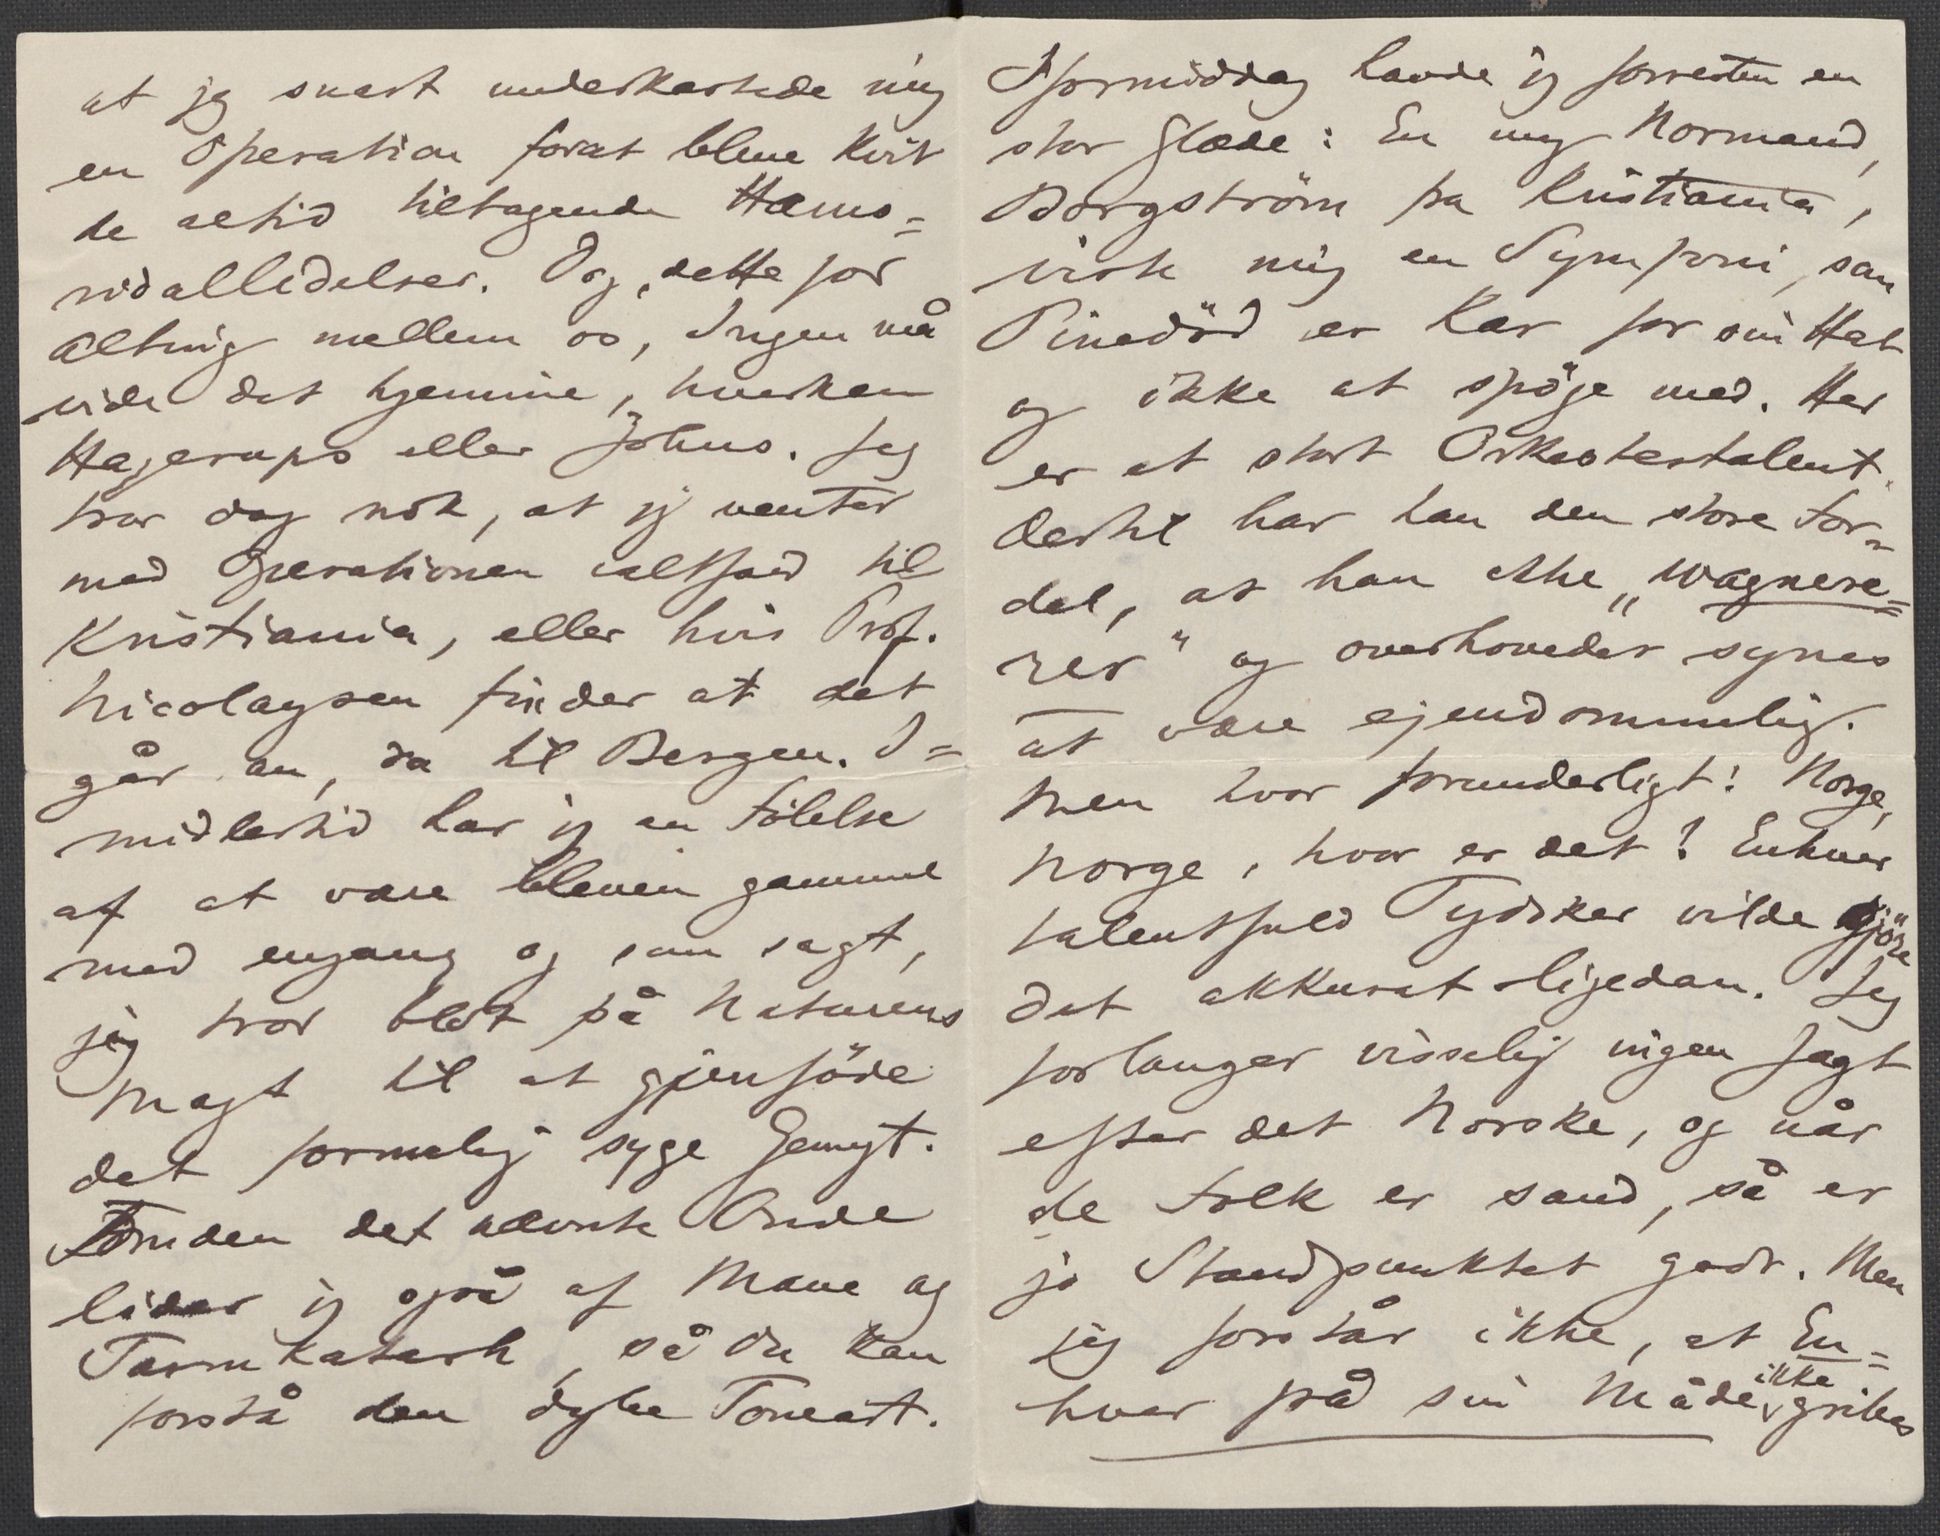 at jeg snart underkastede mig
en Operation forat blive kvit
de altid tiltagende Hæmo=
ridallidelser. Dog, dette for
alting mellem os, Ingen må
vide det hjemme, hverken
Hagerups eller Johns. Jeg
tror dog nok, at jeg venter
med Operationen ialtfald til
Kristiania, eller hvis Prof.
Nicolaysen finder at det
går an, da til Bergen. I=
midlertid har jeg en Følelse
af at være bleven gammel
med engang og som sagt,
jeg tror blot på Naturens
Magt til at gjenføde
det formelig syge Gemyt.
Foruden det nævnte Onde
lider jeg også af Mave og
Tarmkatarh, så Du kan
forstå den dybe Toneart.
Iformiddag havde jeg forresten en
stor Glæde: En ung Normand,
Borgström fra Kristiania,
viste mig en Symfoni, som
Pinedöd er Kar for sin Hat
og ikke at spöge med. Her
er et stort Orkestertalent.
Dertil har han den store For=
del, at han ikke „wagnere=
rer" og overhovedet synes
at være ejendommelig.
Men hvor forunderligt! Norge,
Norge, hvor er det? Enhver
talentfuld Tydsker vilde gjöre
det akkurat ligedan. Jeg
forlanger visselig ingen Jagt
efter det Norske, og når
de Folk er sand, så er
jo Standpunktet godt. Men
jeg forstår ikke, at En=
hver på sin Måde ikke gribes